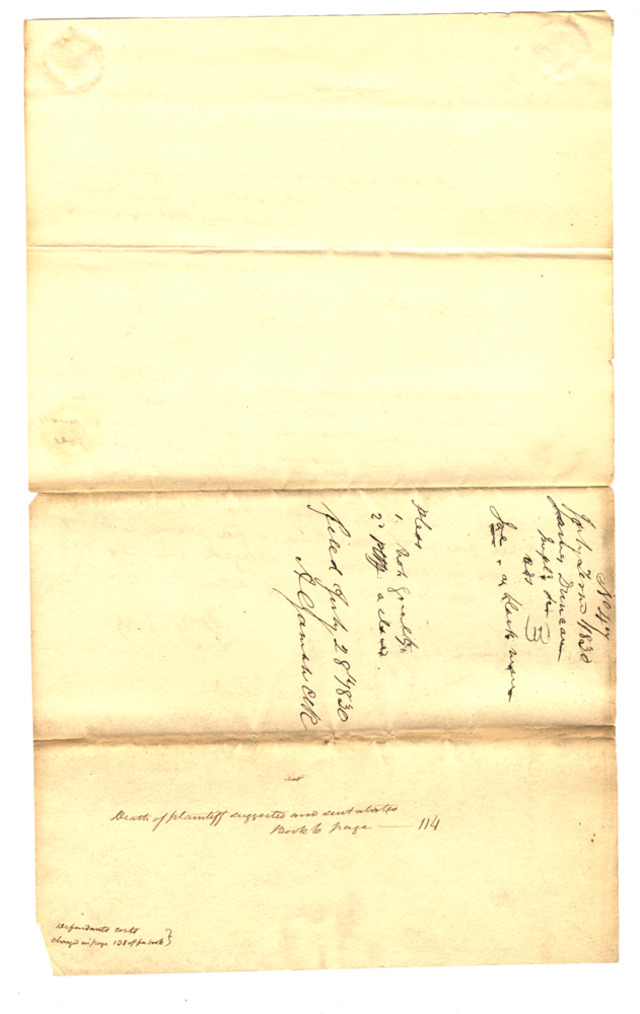 No 47
July Term 1830
Duncan
ads
Joe - a black man
Pleas
1. Not guilty
2d Plff. a slave.
filed July 28th 1830
A Gamble Clk
Death of plaintiff suggested and suit abates
Book 6 page — 114
Defendants costs
charged in page 138 of fee book }